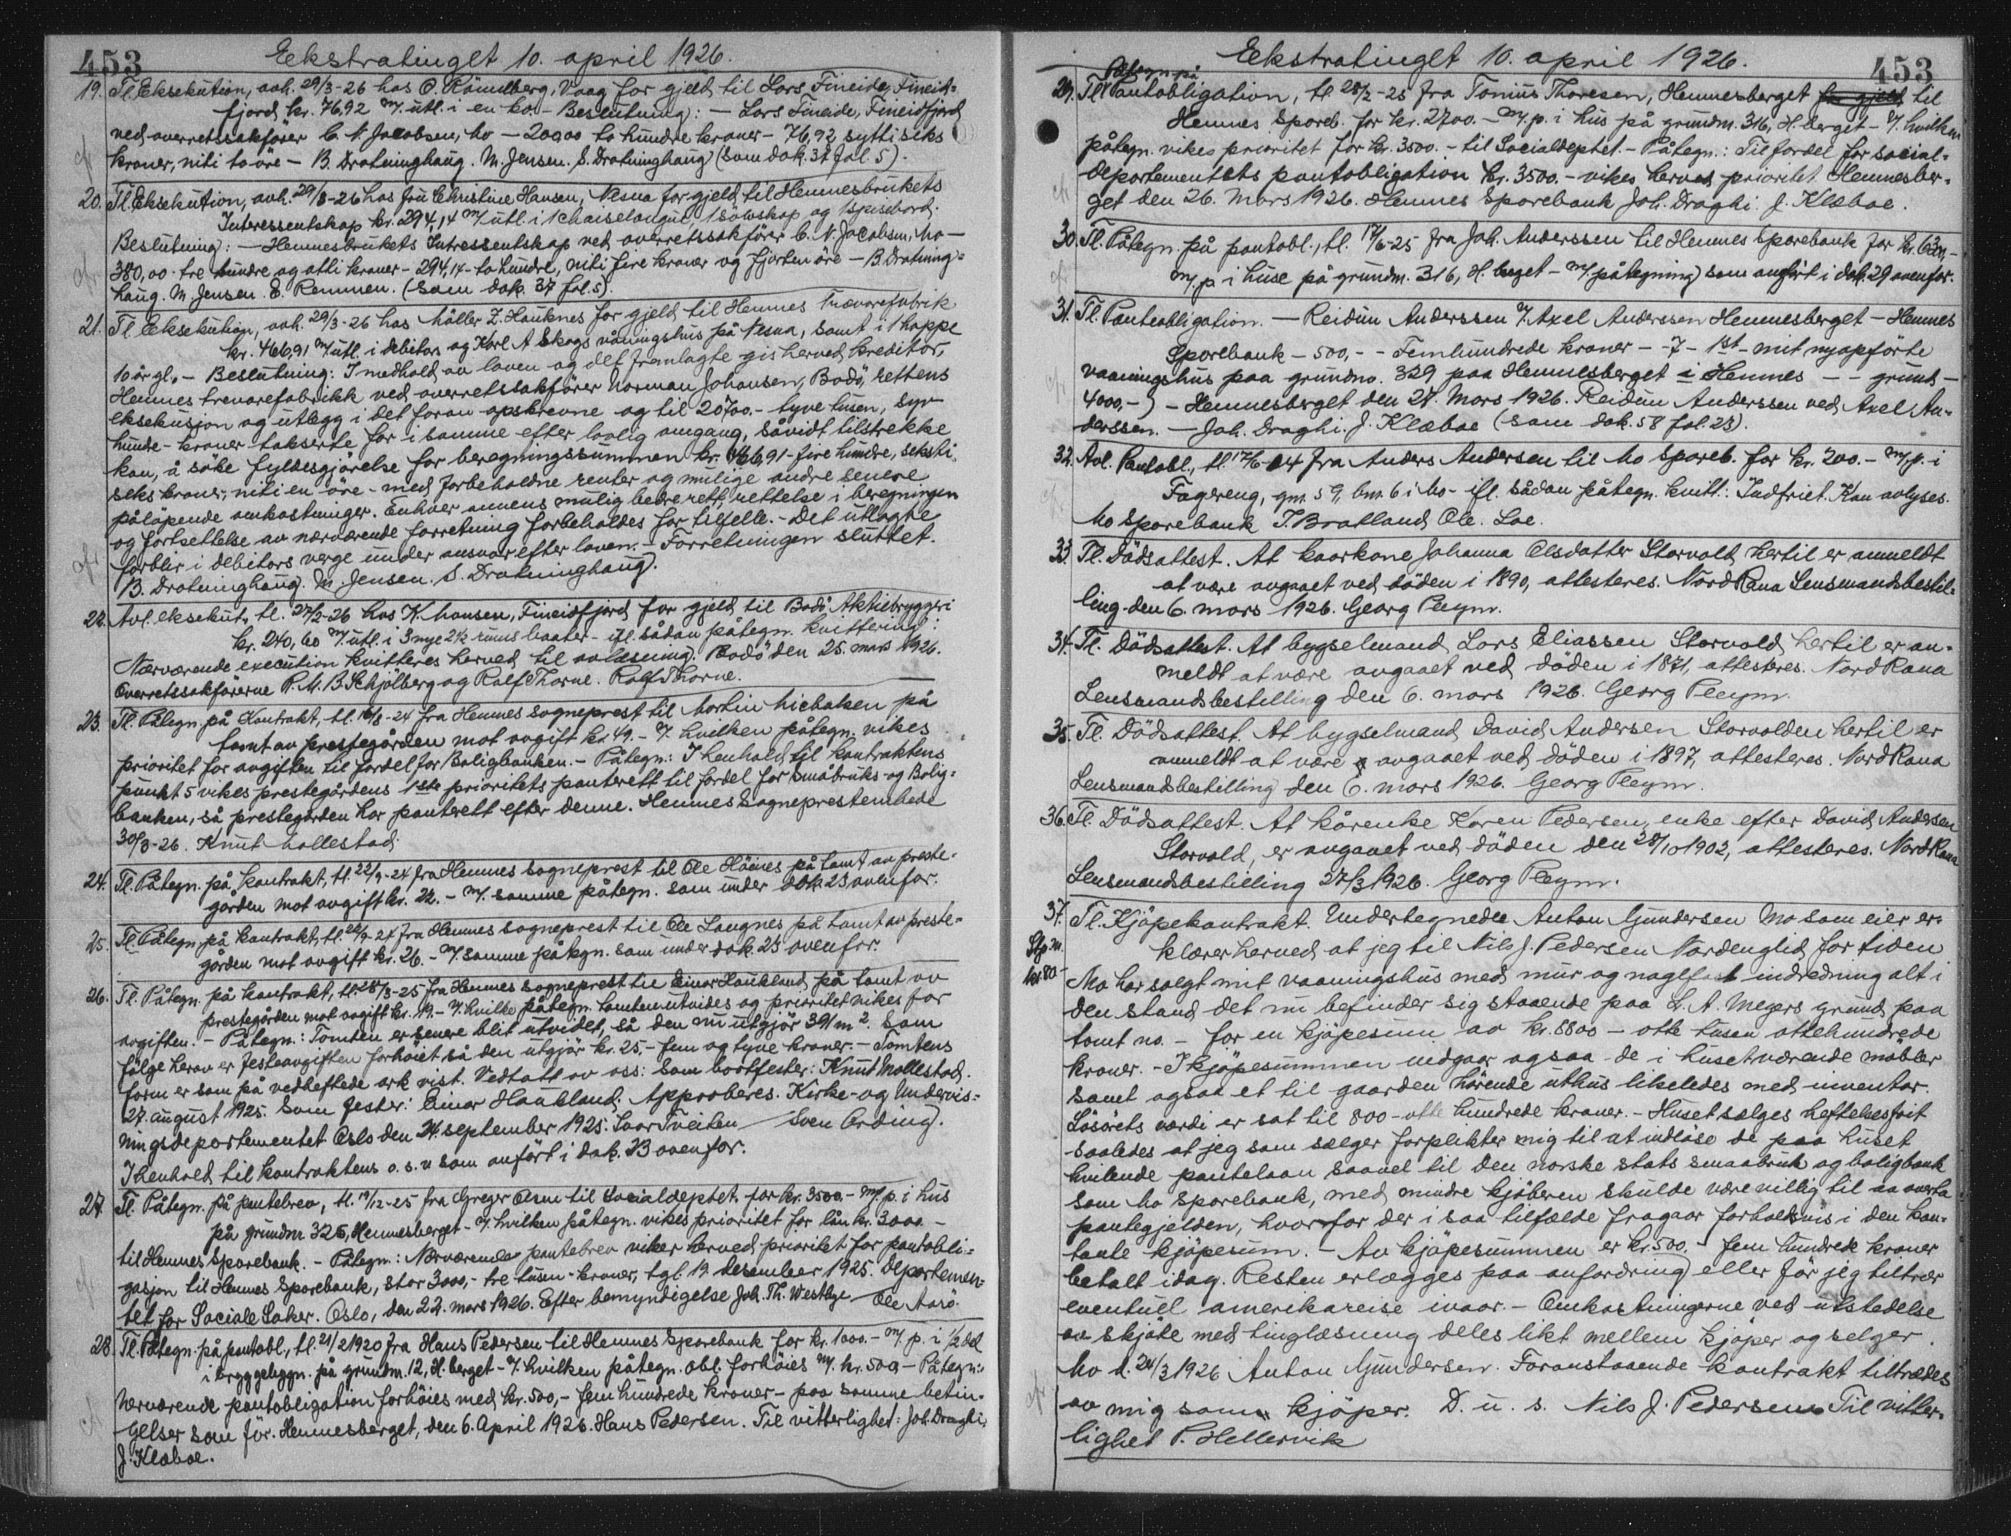 453
Ekstratinget 10. april 1926.
19. Tl. Eksekution, avh. 29/3-26 hos O. Rönnelberg, Vaag for gjeld til Lars Fineide, Fineid-
fjord kr. 76,92 m/utl. i en ko. - Beslutning: - Lars Fineide, Fineidfjord
ved overretssakförer C. N. Jacobsen, Mo - 200,00 to hundre kroner - 76,92 sytti seks
kroner, niti to öre - B. Drotninghaug. M. Jensen. S. Drotninghaug (som dok. 37 fol. 5).
20. Tl. Eksekution, avh. 29/3-26 hos fru Christine Hansen, Nesna for gjeld til Hemnesbrukets
Interessentskap kr. 294,14 m/utl. i 1 chaiselongue 1 sölvskap og 1 spisebord.
Beslutning: - Hemnesbrukets Intressentskap ved overretssakförer C. N. Jacobsen, Mo -
380,00 tre hundre og otti kroner - 294,14 - to hundre, niti fire kroner og fjorten öre - B. Drotning-
haug. M. Jensen. E. Remmen. (som dok. 37 fol. 5).
21. Tl. Eksekution, avh. 29/3-26 hos Möller Z. Hauknes for gjeld til Hemnes Trævarefabrik
kr. 466,91 m/utl. i debitors og Karl A Skogs våningshus på Nesna, samt i 1 hoppe
10 år gl. - Beslutning: I medhold av loven og det fremlagte gis herved kreditor,
Hemnes trevarefabrikk ved overretssakförer Norman Johansen, Bodö, rettens
eksekusjon og utlegg i det foran opskrevne og til 20700.- tyve tusen, syv
hundre - kroner takserte for i samme efter lovlig omgang, såvidt tilstrekke
kan, å söke fyldesgjörelse for beregningssummen kr. 466,91 - fire hundre, seksti
seks kroner, niti en öre - med forbeholdne renter og mulige andre senere
påløpende omkostninger. Enhver annens mulig bedre rett, rettelse i beregningen
og fortsettelse av nærværende forretning forbeholdes for tilfelle. - Det utlagte
forblir i debitors verge under ansvar efter loven. - Forretningen sluttet.
B. Drotninghaug. M. Jensen. S. Drotninghaug).
22. Avl. eksekut. tl. 27/2-26 hos K. Hansen, Fineidfjord for gjeld til Bodö Aktiebryggeri
kr. 240,60 m/utl. i 3 nye 2½ rums baater - ifl. sådan påtegn. kvittering:
Nærværende execution kvitteres herved til avlæsning. Bodö den 25. mars 1926.
Overretssakförerne P. M. B. Schjölberg og Ralf Thorne. Ralf Thorne.
23. Tl. Påtegn. på Kontrakt, tl. 16/8-24 fra Hemnes sogneprest til Martin Michalsen på
tomt av prestegården mot avgift kr. 49. - v/ hvilken påtegn. vikes
prioritet for avgiften til fordel for Boligbanken. - Påtegn: I henhold til kontraktens
punkt 5 vikes prestegårdens 1ste prioritets panterett til fordel for Småbruks- og Bolig-
banken, så prestegården har panterett efter denne. Hemnes Sogneprestembede
30/3-26. Knut Mollestad.
24. Tl. Påtegn. på kontrakt, tl. 22/9-24 fra Hemnes sogneprest til Ole Höines på tomt av preste-
gården mot avgift kr. 22. - m/ samme påtegn. som under dok. 23 ovenfor.
25. Tl. Påtegn. på kontrakt, tl. 22/9-24 fra Hemnes sogneprest til Ole Langnes på tomt av preste-
gården mot avgift kr. 26. - m/ samme påtegn. som under dok. 23 ovenfor.
26. Tl. Påtegn. på kontrakt, tl. 28/3-25 fra Hemnes sogneprest til Einar Haukland på tomt av
prestegården mot avgift kr. 19. - v/ hvilke påtegn. tomten utvides og prioritet vikes for
avgiften. - Påtegn.: Tomten er senere blit utvidet, så den nu utgjör 391 m². Som
fölge herav er festeavgiften forhöiet så den utgjör kr. 25,- fem og tyve kroner. - Tomtens
form er som på vedheftede ark vist. Vedtatt av oss: Som bortfester: Knut Mollestad.
27. august 1925. Som fester: Einar Haukland. Approberes. Kirke- og Undervis-
ningsdepartementet Oslo den 24. september 1925. Ivar Tveiten / Sven Arding.
I henhold til kontraktens o. s. v som anfört i dok. 23 ovenfor.
27. Tl. Påtegn. på pantebrev, tl. 19/12-25 fra Greger Olsen til Socialdeptet. for kr. 3500.- m/p. i hus
på grundnr. 325, Hemnesberget - v/ hvilken påtegn. vikes prioritet for lån kr. 3000. -
til Hemnes Sparebank. - Påtegn: Nærværende pantebrev viker herved prioritet for pantobli-
gasjon til Hemnes Sparebank, stor 3000,- tre tusen - kroner, tgl. 19. desember 1925. Departemen-
tet for Sociale Saker. Oslo, den 22. mars 1926. Efter bemyndigelse Joh. Th. Westbye / Ole Aasö.
28. Tl. Påtegn. på pantobl., tl. 21/2 1920 fra Hans Pedersen til Hemnes Sparebank for kr. 1000. - m/ p. i 1/2 del
i bryggebygn. på grundnr. 12, H. berget - v/ hvilken påtegn. obl. forhöies m/ kr. 500 - Påtegn:
Nærværende pantobligation forhöies med kr. 500,- fem hundrede kroner - paa samme betin-
gelser som för. Hemnesberget, den 6. April 1926. Hans Pedersen. Til vitterlighet: Joh. Draghi,
J. Klæboe.
453
Ekstratinget 10. april 1926.
Påtegn på
29. Tl. Pantobligation, tl. 28/2-25 fra Tonius Thoresen, Hemnesberget for gjeld til
Hemnes Spareb. for kr. 2700. - m/p. i hus på grundnr. 316, H. berget - v/ hvilken
påtegn. vikes prioritet for kr. 3500. - til Socialdeptet. - Påtegn.: Til fordel for social-
departementets pantobligation kr. 3500. - vikes herved prioritet Hemnesber-
get den 26. Mars 1926. Hemnes Sparebank Joh. Draghi. J. Klæboe.
30. Tl. Påtegn. på pantobl., tl. 14/6-25 fra Joh. Anderssen til Hemnes Sparebank for kr. 630,-
m/p i huse på grundnr. 316, H. berget - m/påtegning) som anfört i dok. 29 ovenfor.
31. Tl. Pantobligation. - Reidun Anderssen v/ Axel Anderssen Hemnesberget - Hemnes
Sparebank - 500,- - Femhundrede kroner - - 7 - 1st - mit nyopförte
vaaningshus paa grundno. 329 paa Hemnesberget i Hemnes - - grund -
4000,-) - Hemnesberget den 27. Mars 1926. Reidun Anderssen ved Axel An-
derssen. - Joh. Draghi. J. Klæboe (som dok. 58 fol. 23).
32. Avl. Pantobl., tl. 17/6-04 fra Anders Andersen til Mo Spareb. for kr. 200. - m/p. i
Fagereng, gnr. 59, bnr. 6 i Mo - ifl. sådan påtegn. kvitt: Indfriet. Kan avlyses.
Mo Sparebank T. Bratland Ole. Loe.
33. Tl. Dödsattest. At kaarkone Johanna Olsdatter Storvold hertil er anmeldt
at være avgaaet ved döden i 1890, attesteres. Nord Rana Lensmandsbestil-
ling den 6. mars 1926. Georg Pleym.
34. Tl. Dödsattest. At bygselmand Lars Eliassen Storvold hertil er an-
meldt at være avgaaet ved döden i 1871, attesteres. Nord Rana
Lensmandsbestilling den 6. mars 1926. Georg Pleym.
35. Tl. Dödsattest. At bygselmand David Andersen Storvolden hertil er
anmeldt at være avgaaet ved döden i 1897, attesteres. Nord Rana
Lensmandsbestilling den 6. mars 1926. Georg Pleym.
36. Tl. Dödsattest. At kårenke Karen Pedersen, enke efter David Andersen
Storvold, er avgaaet ved döden den 28/10 1902, attesteres. Nord Rana
Lensmandsbestilling 27/3 1926. Georg Pleym.
37. Tl. Kjöpekontrakt. Undertegnede Anton Gundersen Mo som eier er-
klærer herved at jeg til Nils J. Pedersen Nordenglid for tiden
kr 80.-
Mo har solgt mit vaaningshus med mur og naglfast indredning alt i
den stand det nu befinder sig staaende paa L. A. Meyers grund paa
tomt no. - for en kjöpesum av kr. 8800 - otte tusen ottehundrede
kroner. - I kjöpesummen medgaar ogsaa de i huset værende möbler
samt ogsaa et til gaarden hörende uthus likeledes med inventar.
Lösörets værdi er sat til 800 - otte hundrede kroner. - Huset sælges heftelsesfrit
saaledes at jeg som sælger forplikter mig til at indlöse de paa huset
hvilende pantelaan saavel til den norske stats smaabruk og boligbank
som Mo Sparebank, med mindre kjöberen skulde være villig til aa overta
pantegjelden, hvorfor der i saa tilfælde fragaar forholdsvis i den kon-
tante kjöpesum. - Av kjöpesummen er kr. 500. - fem hundrede kroner
betalt idag. Resten erlægges paa anfordring eller för jeg tiltrær
eventuel amerikareise ivaar. - Omkostningerne ved utstedelse
av skjöte med tinglæsning deles likt mellem kjöper og selger.
Mo d. 24/3 1926 Anton Gundersen. Foranstaaende kontrakt tiltrædes
av mig som kjöper. D. u. s. Nils J. Pedersen. Til vitter-
lighet P. Hellervik